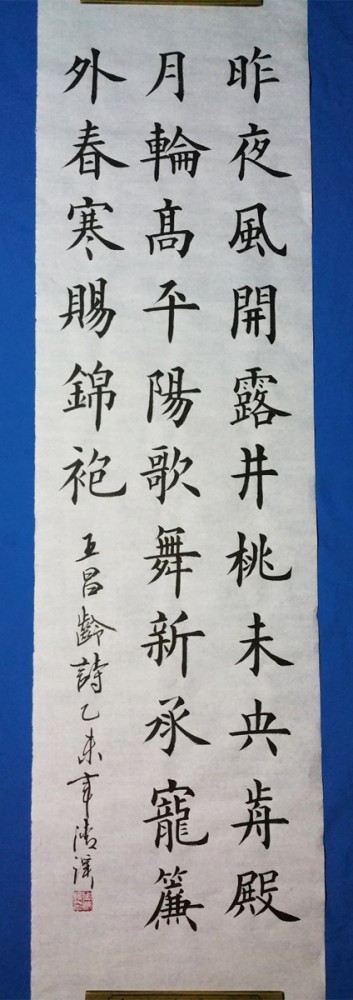 昨夜風開露井桃未央歬殿
月輪高平陽歌舞新承寵簾
外春寒賜錦袍
王昌齡詩乙未年